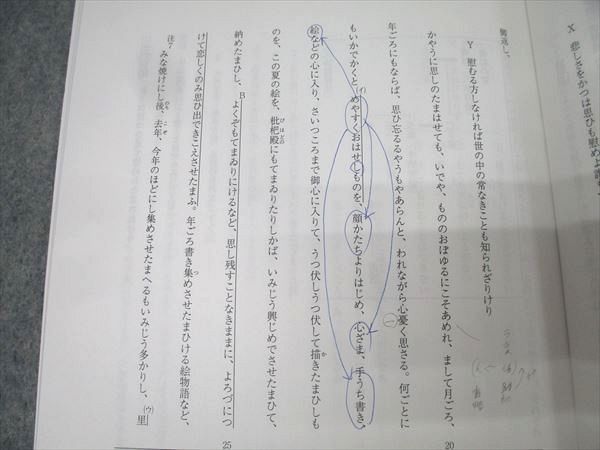 X　悲しさをかつは思ひも慰めよ誰
御返し、
Y　慰むる方しなければ世の中の常なきことも知られざりけり
かやうに思しのたまはせても、いでや、もののおぼゆるにこそあめれ、まして月ごろ、
年ごろにもならば、思ひ忘るるやうもやあらんと、われながら心憂く思さる。何ごとに
もいかでかくと(イ)めやすくおはせしものを、顔かたちよりはじめ、心ざま、手うち書き、
絵などの心に入り、さいつころまで御心に入りて、うつ伏しうつ伏して描きたまひしも
のを、この夏の絵を、枇杷殿にもてまゐりたりしかば、いみじう興じめでさせたまひて、
納めたまひし、Bよくぞもてまゐりにけるなど、思し残すことなきままに、よろづにつ
けて恋しくのみ思ひ出できこえさせたまふ。年ごろ書き集めさせたまひける絵物語など、
注7 みな焼けにし後、去年、今年のほどにし集めさせたまへるもいみじう多かりし、(ウ)里
20
25